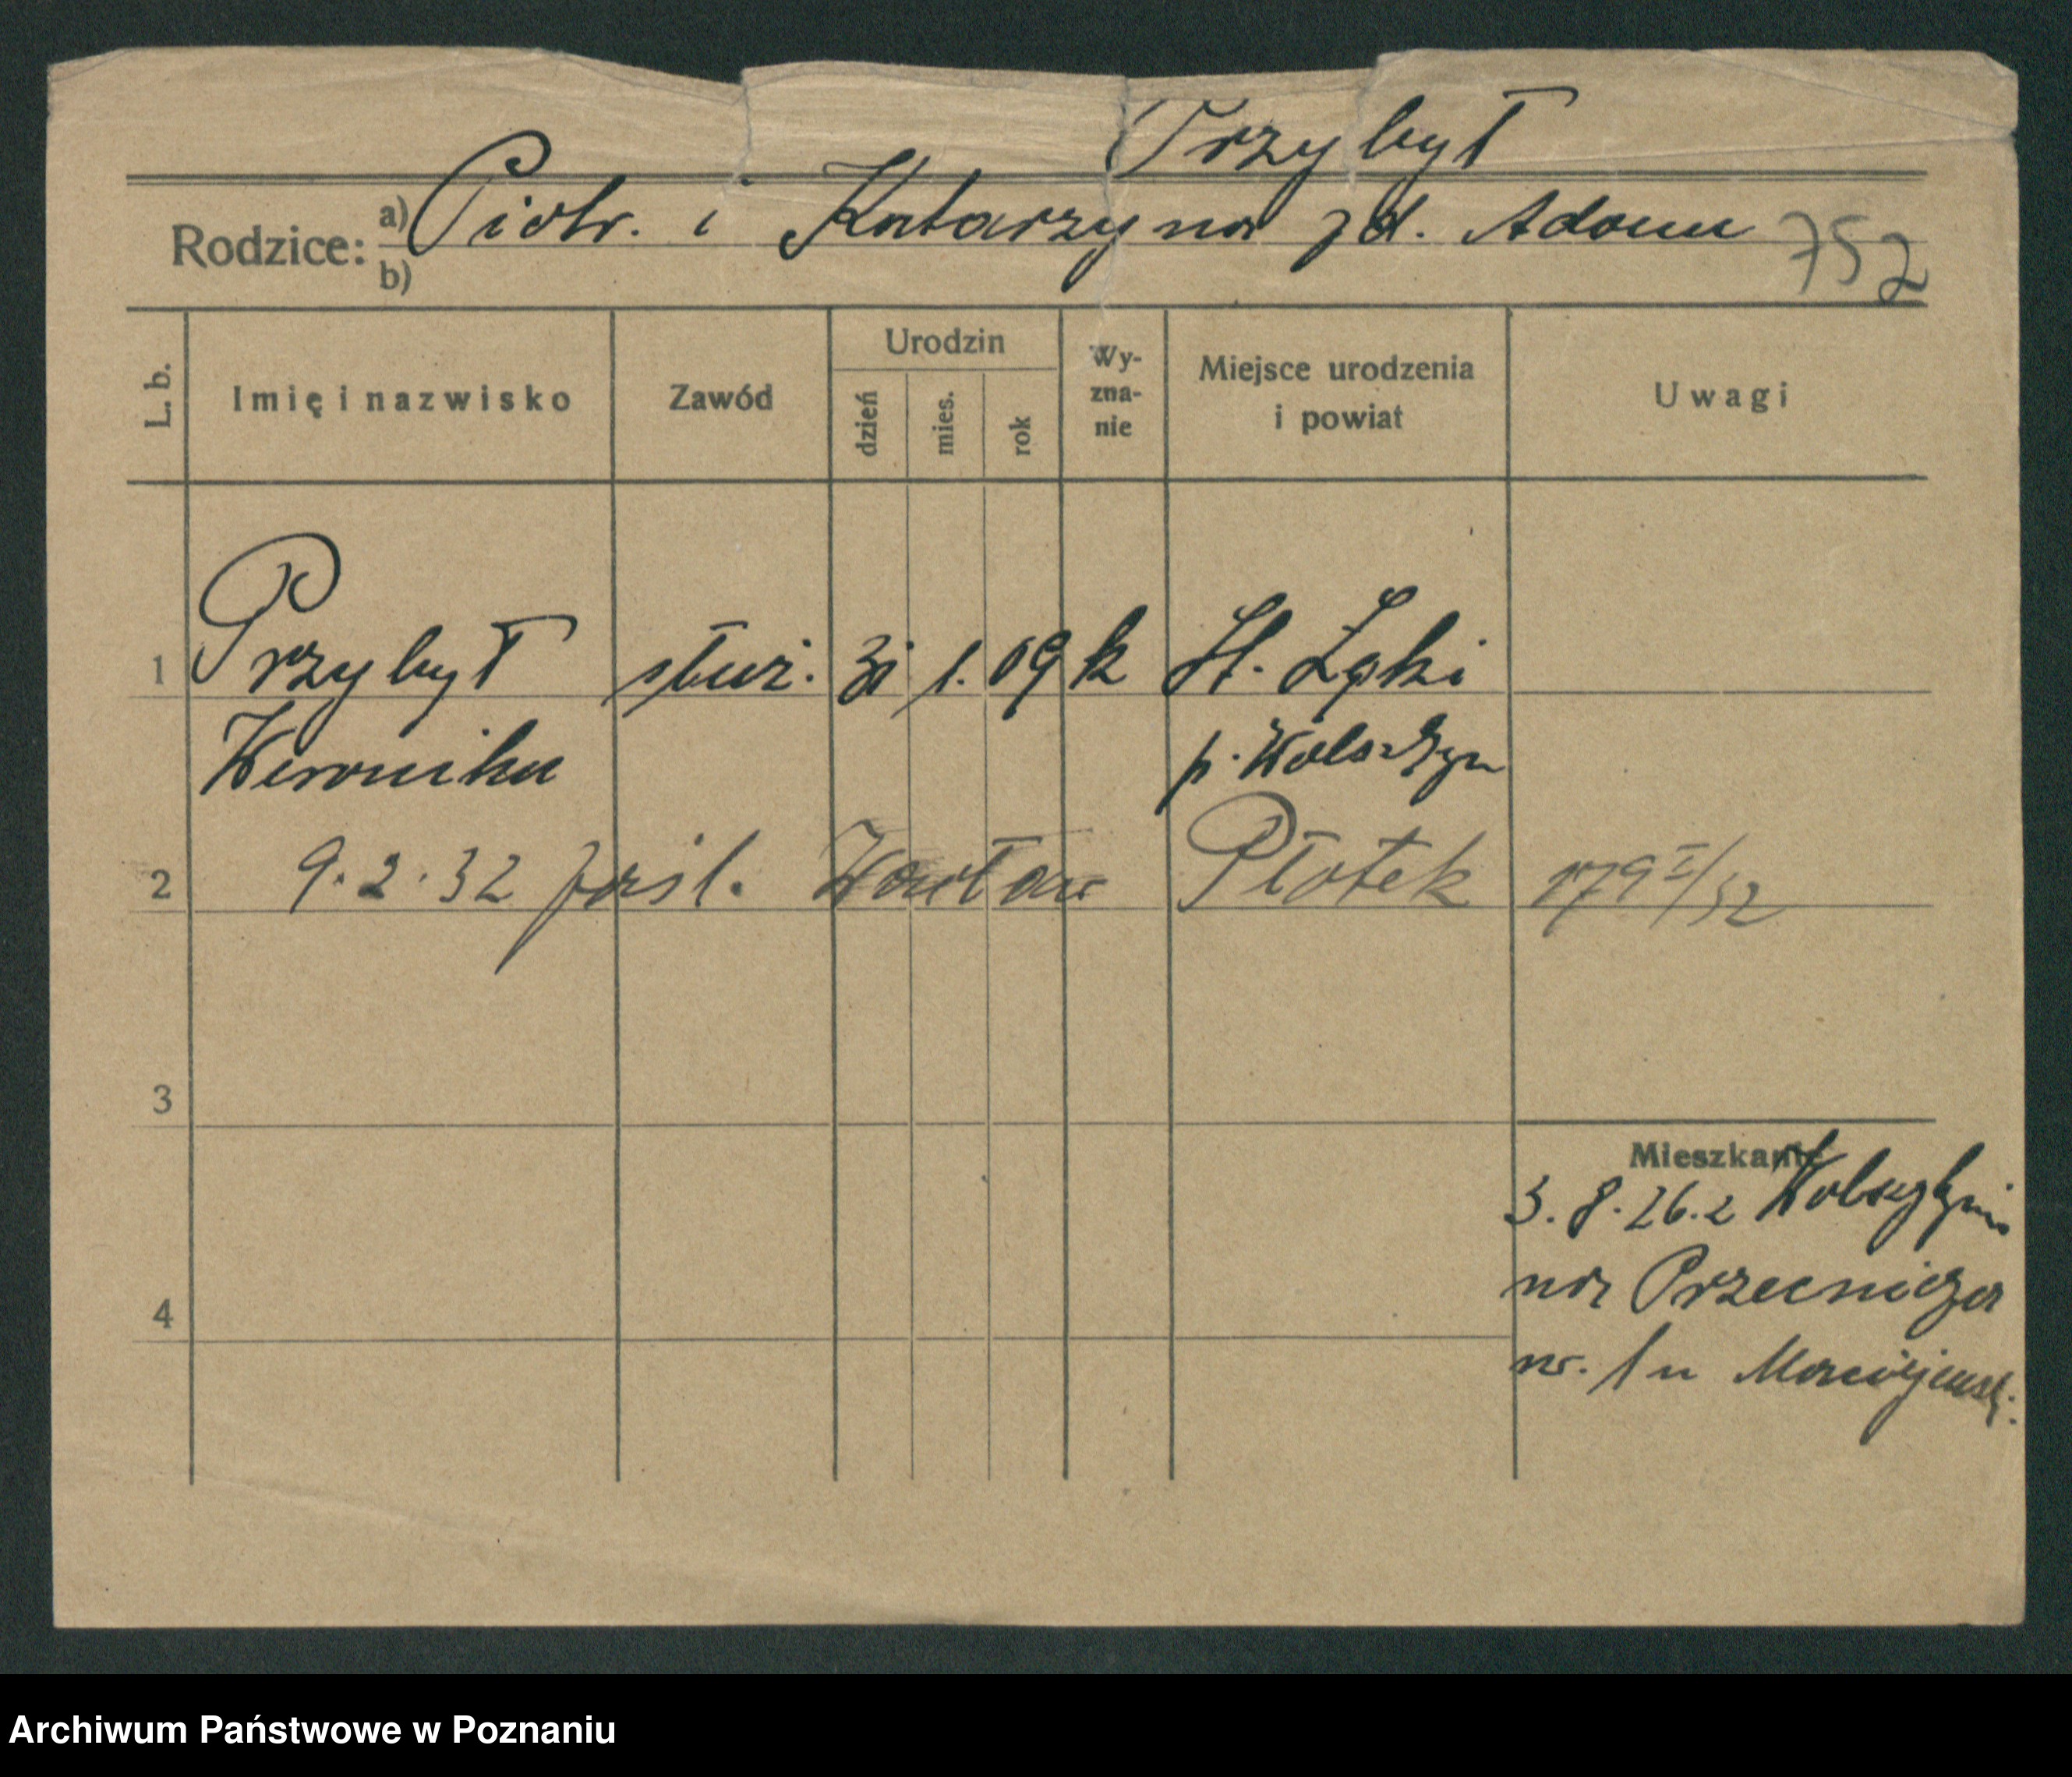 Przybył
Rodzice: a) Piotr. i Katarzyna zd. Adam 752
b)
L. b. Imię i nazwisko Zawód Urodzin dzień mies. rok Wy-zna-nie Miejsce urodzenia i powiat Uwagi
1 Przybył służ. 31 1. 09 k St. Łąki
Weronika p. Wolsztyn
2 9.2.32 zaśl. Wacław Płotek 179 I/32
3
Mieszkanie
3.8.26. z Wolsztyna
4 na
nr. 1 u Maciejewski
Archiwum Państwowe w Poznaniu